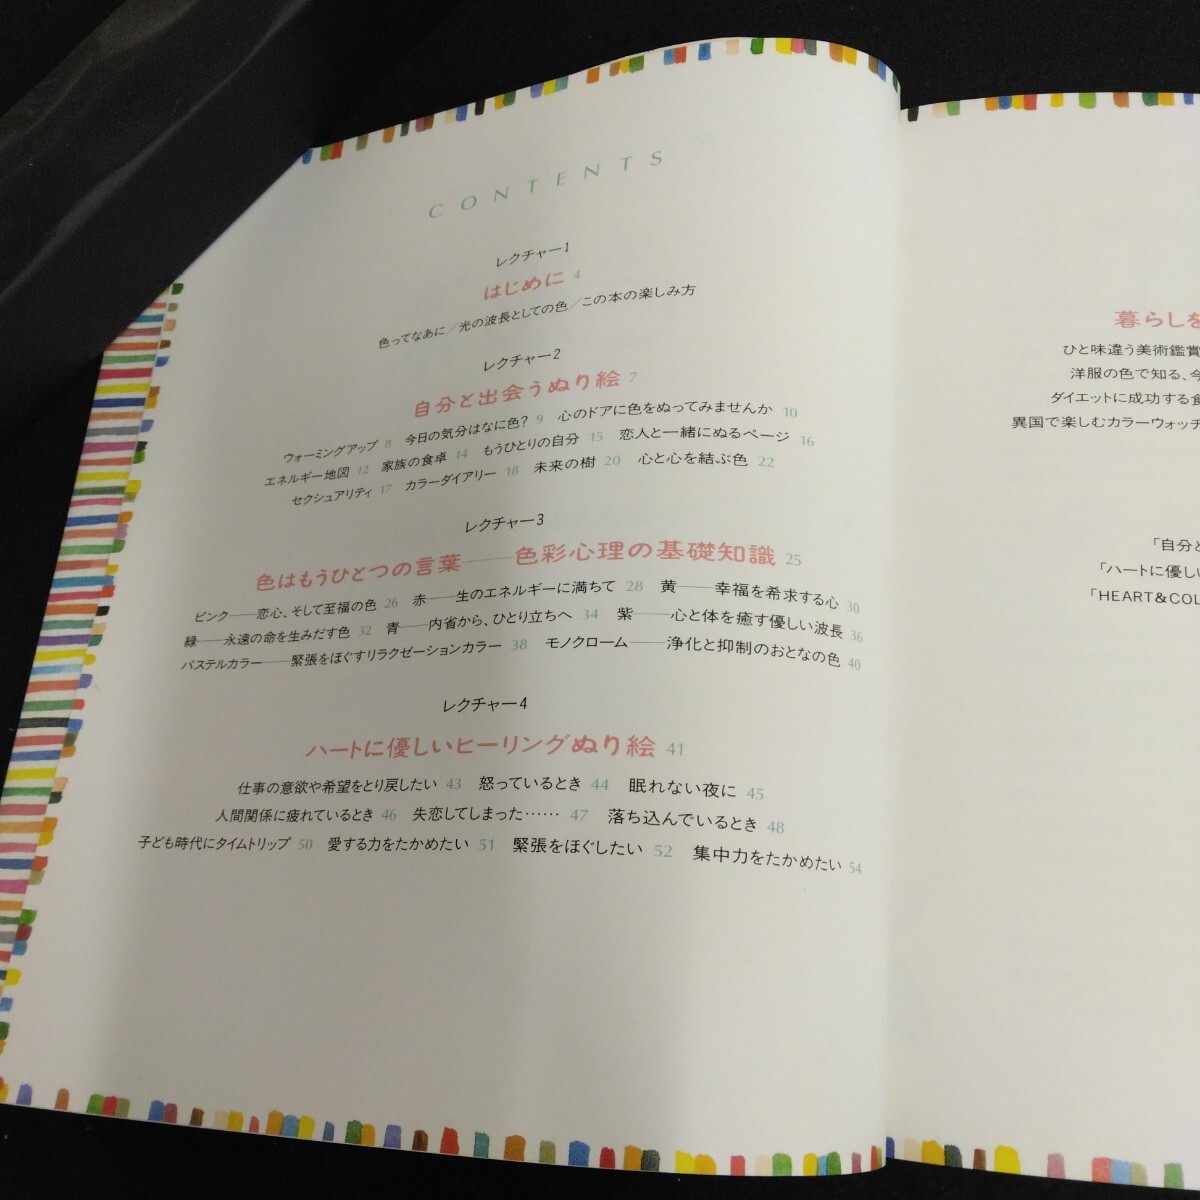 CONTENTS
レクチャー1
はじめに 4
色ってなあに／光の波長としての色／この本の楽しみ方
レクチャー2
自分と出会うぬり絵 7
ウォーミングアップ 8 今日の気分はなに色? 9 心のドアに色をぬってみませんか 10
エネルギー地図 12 家族の食卓 14 もうひとりの自分 15 恋人と一緒にぬるページ 16
セクシュアリティ 17 カラーダイアリー 18 未来の樹 20 心と心を結ぶ色 22
レクチャー3
色はもうひとつの言葉――色彩心理の基礎知識 25
ピンク――恋心、そして至福の色 26 赤――生のエネルギーに満ちて 28 黄――幸福を希求する心 30
緑――永遠の命を生みだす色 32 青――内省から、ひとり立ちへ 34 紫――心と体を癒す優しい波長 36
パステルカラー――緊張をほぐすリラクゼーションカラー 38 モノクローム――浄化と抑制のおとなの色 40
レクチャー4
ハートに優しいヒーリングぬり絵 41
仕事の意欲や希望をとり戻したい 43 怒っているとき 44 眠れない夜に 45
人間関係に疲れているとき 46 失恋してしまった…… 47 落ち込んでいるとき 48
子ども時代にタイムトリップ 50 愛する力をたかめたい 51 緊張をほぐしたい 52 集中力をたかめたい 54
暮らしを
ひと味違う美術鑑賞
洋服の色で知る、今
ダイエットに成功する食
異国で楽しむカラーウォッチ
「自分と
「ハートに優しい
「HEART&COL